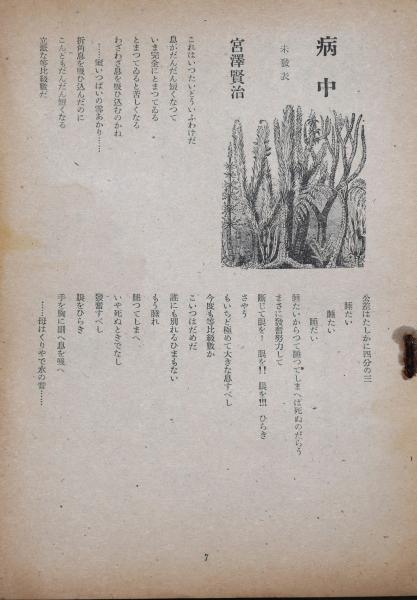 病中
未發表
宮澤賢治
これはいつたいどういふわけだ
息がだんだん短くなつて
いま完全にとまつてゐる
とまつてゐると苦しくなる
わざわざ息を吸ひ込むのかね
……室いつぱいの雪あかり……
折角息を吸ひ込んだのに
こんどもだんだん短くなる
立派な等比級數だ
公差はたしかに四分の三
睡たい
睡たい
睡たい
睡たいからつて睡つてしまへば死ぬのだらう
まさに發奮努力して
斷じて眼を! 眼を!! 眼を!!! ひらき
さやう
もいちど極めて大きな息すべし
今度も等比級數か
こいつはだめだ
誰にも別れるひまもない
もう睡れ
睡つてしまへ
いや死ぬときでなし
發奮すべし
眼をひらき
手を胸に副へ息を吸へ
……母はくりやで水の音……
7